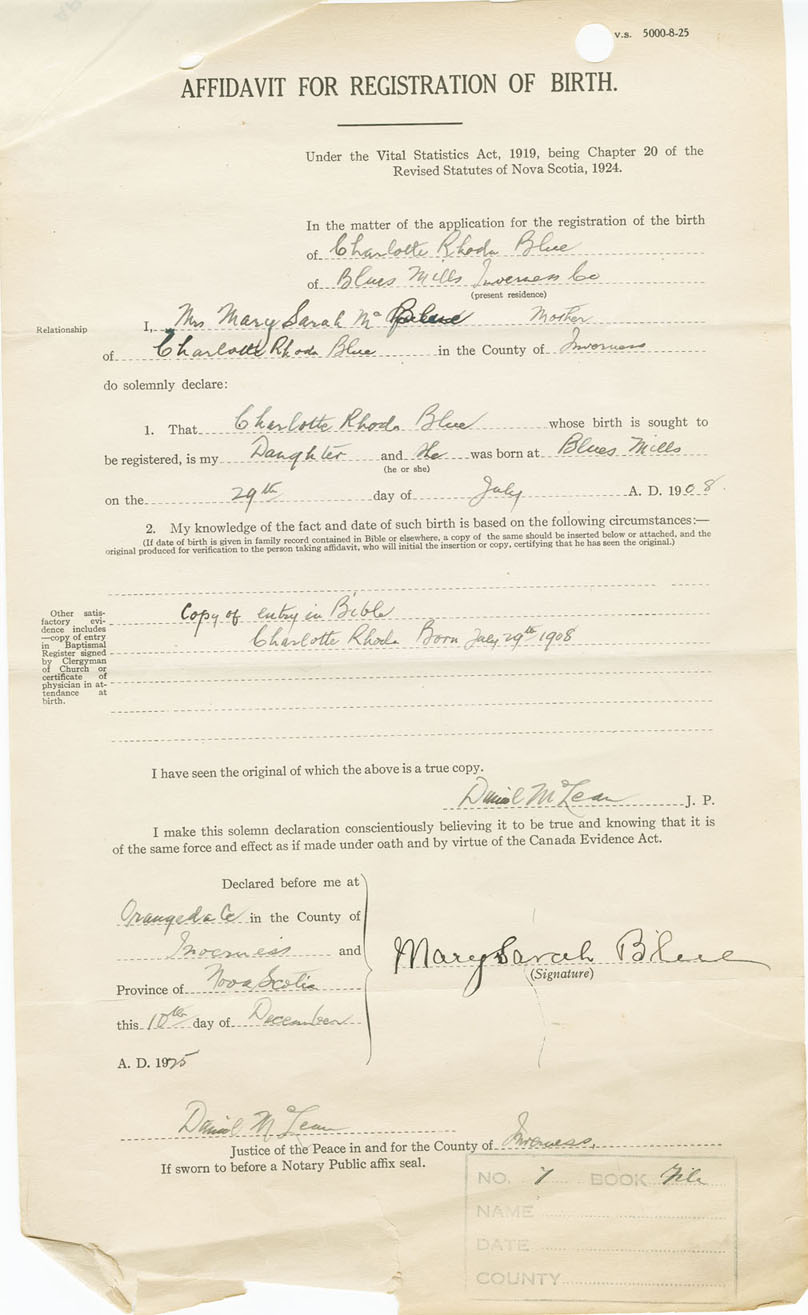 v.s. 5000-8-25
AFFIDAVIT FOR REGISTRATION OF BIRTH.
Under the Vital Statistics Act, 1919, being Chapter 20 of the
Revised Statutes of Nova Scotia, 1924.
In the matter of the application for the registration of the birth
of Charlotte Rhoda Blue
of Blues Mills Inverness Co
(present residence)
Relationship
I, Mrs Mary Sarah Mc Blue Mother
of Charlotte Rhoda Blue in the County of Inverness
do solemnly declare:
1. That Charlotte Rhoda Blue whose birth is sought to
be registered, is my Daughter and she was born at Blues Mills
(he or she)
on the 29th day of July A. D. 1908.
2. My knowledge of the fact and date of such birth is based on the following circumstances:—
(If date of birth is given in family record contained in Bible or elsewhere, a copy of the same should be inserted below or attached, and the
original produced for verification to the person taking affidavit, who will initial the insertion or copy, certifying that he has seen the original.)
Other satis-
factory evi-
dence includes
—copy of entry
in Baptismal
Register signed
by Clergyman
of Church or
certificate of
physician in at-
tendance at
birth.
Copy of entry in Bible
Charlotte Rhoda Born July 29th 1908
I have seen the original of which the above is a true copy.
Daniel McLean J. P.
I make this solemn declaration conscientiously believing it to be true and knowing that it is
of the same force and effect as if made under oath and by virtue of the Canada Evidence Act.
Declared before me at
Orangedale in the County of
Inverness and
Province of Nova Scotia
this 10th day of December
A. D. 1925
Mary Sarah Blue
(Signature)
Daniel McLean
Justice of the Peace in and for the County of Inverness.
If sworn to before a Notary Public affix seal.
NO. 7 BOOK File
NAME
DATE
COUNTY